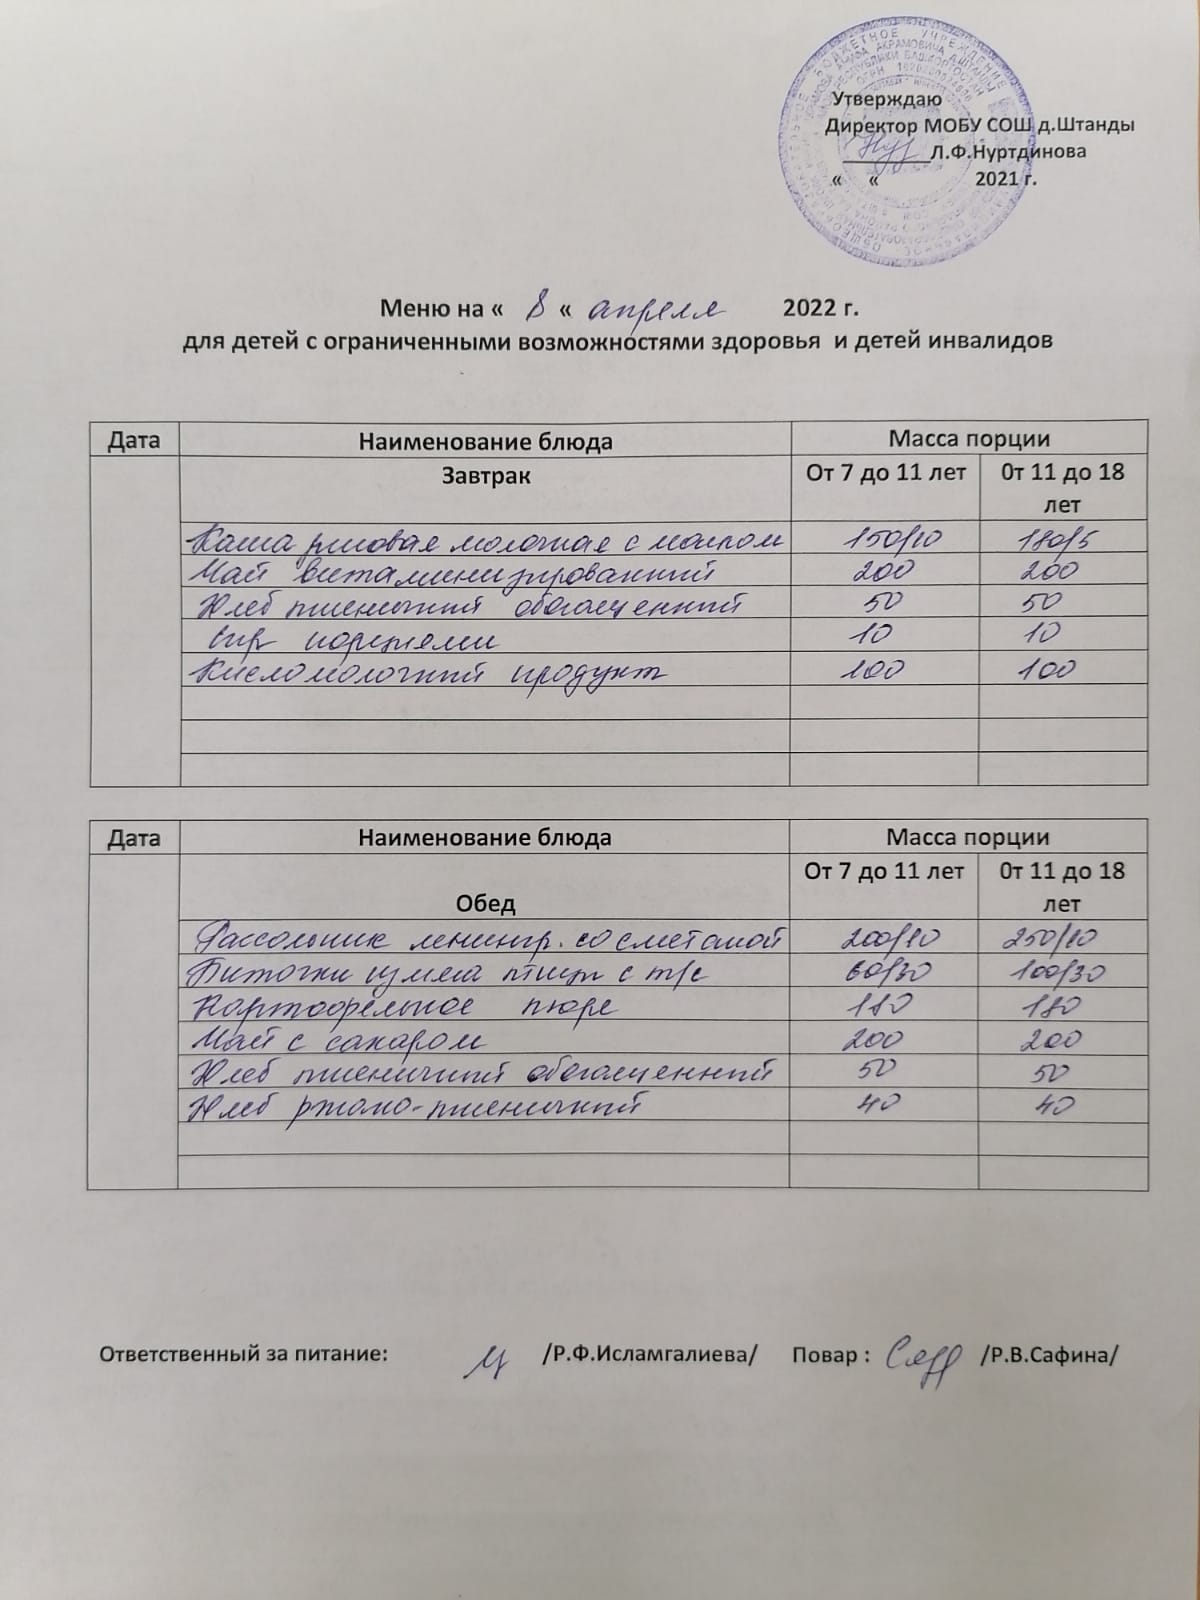 Утверждаю
Директор МОБУ СОШ д.Штанды
Л.Ф.Нуртдинова
« « 2021 г.
Меню на « 8 « апреля 2022 г.
для детей с ограниченными возможностями здоровья и детей инвалидов
Дата Наименование блюда Масса порции
Завтрак От 7 до 11 лет 0т 11 до 18 лет
Каша рисовая молочная с маслом 150/10 180/5
Чай витаминизированный 200 200
Хлеб пшеничный обогащенный 50 50
Сыр порциями 10 10
Кисломолочный продукт 100 100
Дата Наименование блюда Масса порции
Обед От 7 до 11 лет 0т 11 до 18 лет
Рассольник ленингр. со сметаной 200/10 250/10
Биточки из мяса птицы с т/с 60/30 100/30
Картофельное пюре 180 180
Чай с сахаром 200 200
Хлеб пшеничный обогащенный 50 50
Хлеб ржано-пшеничный 40 40
Ответственный за питание: /Р.Ф.Исламгалиева/ Повар : /Р.В.Сафина/